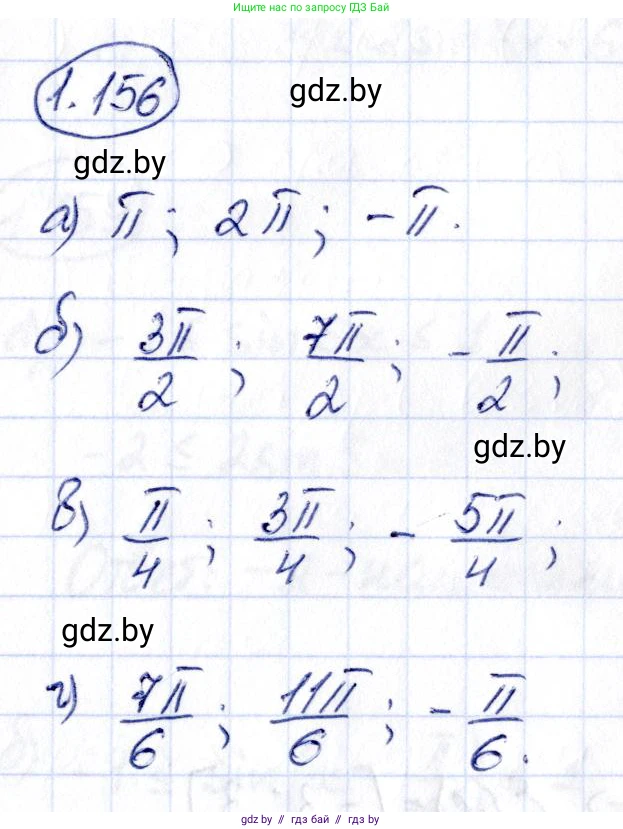 Ищите нас по запросу ГДЗ Бай
1.156
gdz.by
gdz.by
а) π; 2π; -π.
б) 3π/2; 7π/2; -π/2;
gdz.by
в) π/4; 3π/4; -5π/4;
gdz.by
г) 7π/6; 11π/6; -π/6.
gdz.by // гдз бай // гдз by